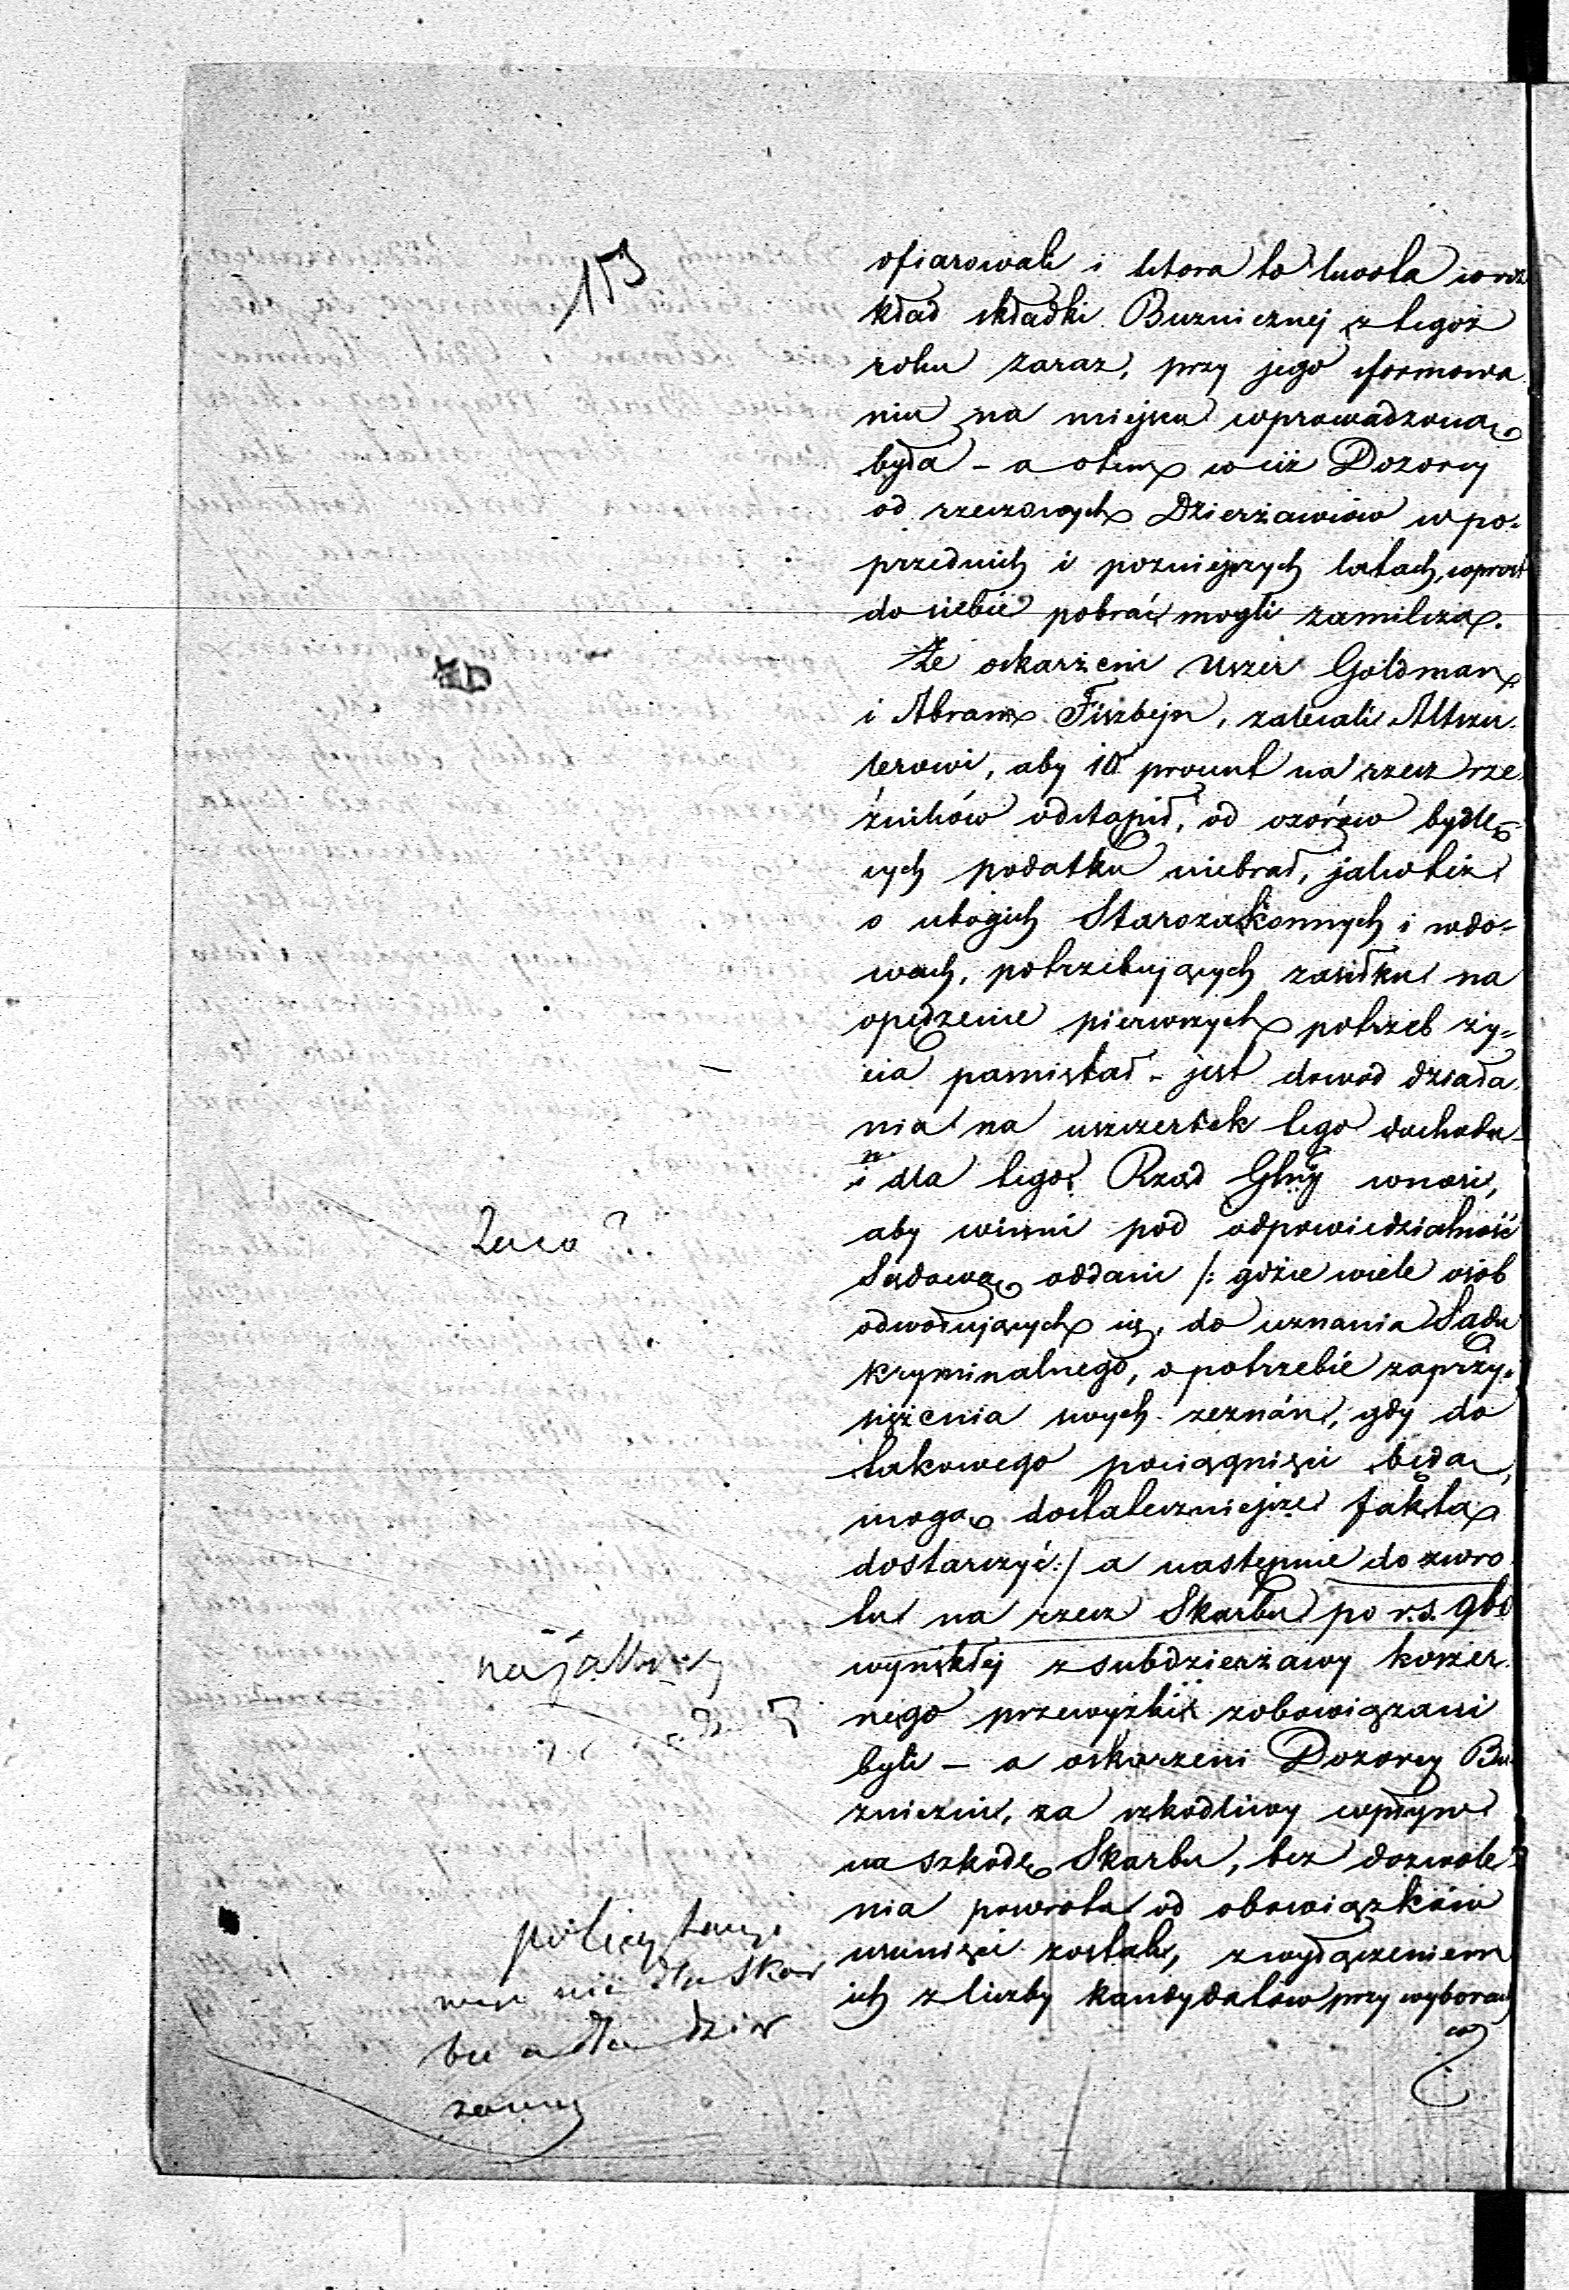 153
ofiarowali i która to kwota w roz
kład składki Bużnicznej z tegoż
roku zaraz, przy jego formowa
niu na miejscu wprowadzona
była – a o tem w ciż Dozorcy
od rzeczonych Dzierżawców w po=
przednich i pozniejszych latach, wprost
do siebie pobrać mogli zamilcza.
Że oskarżeni Uszer Goldman
i Abram Fiszbejn, zalecali Altszu
lerowi, aby 10 procent na rzecz rze
źników odstąpił, od ozorów bydlę
cych podatku niebrał, jako też
o ubogich Starozakonnych i wdo=
wach, potrzebujących zasiłku na
opędzenie pierwszych potrzeb ży=
cia pamiętał – jest dowód działa
nia na uszczerbek tego dochodu
i dla tego Rząd Glny wnosi,
aby winni pod odpowiedzialność
Sądową oddani /: gdzie wiele osób
odwołujących się, do uznania Sądu
kryminalnego, o potrzebie zaprzy=
siężenia swych zeznań, gdy do
takowego pociągnięci będą,
mogą dostateczniejsze fakta
dostarczyć :/ a następnie do zwro
tu na rzecz Skarbu po r.s. 960
wynikłej z subdzierżawy koszer
nego przewyżki zobowiązani
byli – a oskarżeni Dozorcy Bu
żniczni, za szkodliwy wpływ
na szkodę Skarbu, bez dozwole
nia powrotu od obowiązków
usunięci zostali, z wyłączeniem
ich z liczby kandydatów przy wyborach
Za co?
nie dla Skar
bu a dla dzier
żawcy